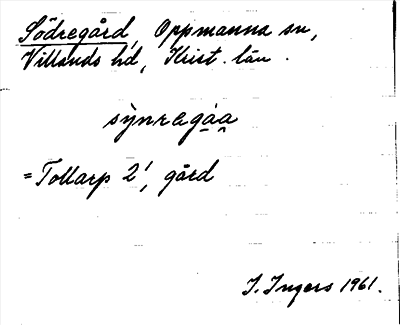 Södregård, Oppmanna sn,
Villands hd, Krist. län.
sỳnragáa
= Tollarp 2¹, gård
I. Ingers 1961.